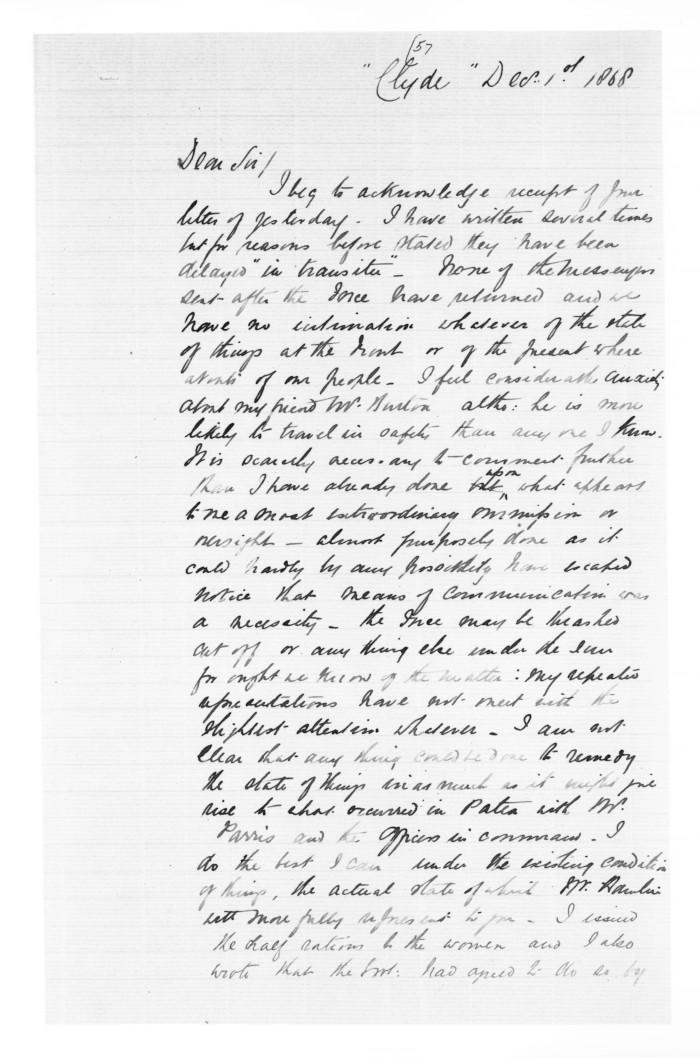 157
"Clyde" Decr. 1st 1868
Dear Sir/
I beg to acknowledge receipt of your
letter of yesterday - I have written several times
but for reasons before stated they have been
delayed "in transitu" - None of the messengers
sent after the Force have returned and we
have no intimation whatever of the state
of things at the Front or of the present where
abouts of our people - I feel considerable anxiety
about my friend Mr. Burton altho: he is more
likely to travel in safety than any one I know.
It is scarcely necessary to comment further
than I have already done upon what appears
to me a most extraordinary ommission or
oversight - almost purposely done as it
could hardly by any possibility have escaped
notice that means of communication was
a necessity - the Force may be thrashed
cut off or any thing else under the sun
for ought we know of the matter: my repeated
representations have not met with the
slightest attention whatever - I am not
clear that any thing could be done to remedy
the state of things in as much as it might give
rise to what occurred in Patea with Mr.
Parris and the Officers in command - I
do the best I can under the existing condition
of things, the actual state of which Mr. Hamlin
will more fully represent to you - I issued
the half rations to the women and I also
wrote that the Govt: had agreed to do so by